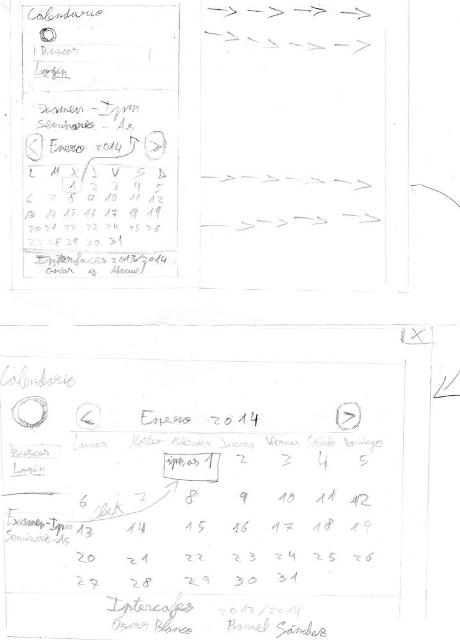 Calendario
Buscar
Login
Examen - Ipm
Seminario - As
< Enero 2014 >
L M X J V S D
1 2 3 4 5
6 7 8 9 10 11 12
13 14 15 16 17 18 19
20 21 22 23 24 25 26
27 28 29 30 31
Interfaces 2013/2014
Oscar y Manuel
X
Calendario
< Enero 2014 >
Buscar
Login
Lunes Martes Miércoles Jueves Viernes Sábado Domingo
ipm as 1 2 3 4 5
6 7 8 9 10 11 12
Click
Examen-Ipm
Seminario-As
13 14 15 16 17 18 19
20 21 22 23 24 25 26
27 28 29 30 31
Interfaces 2013/2014
Oscar Blanco - Manuel Sánchez